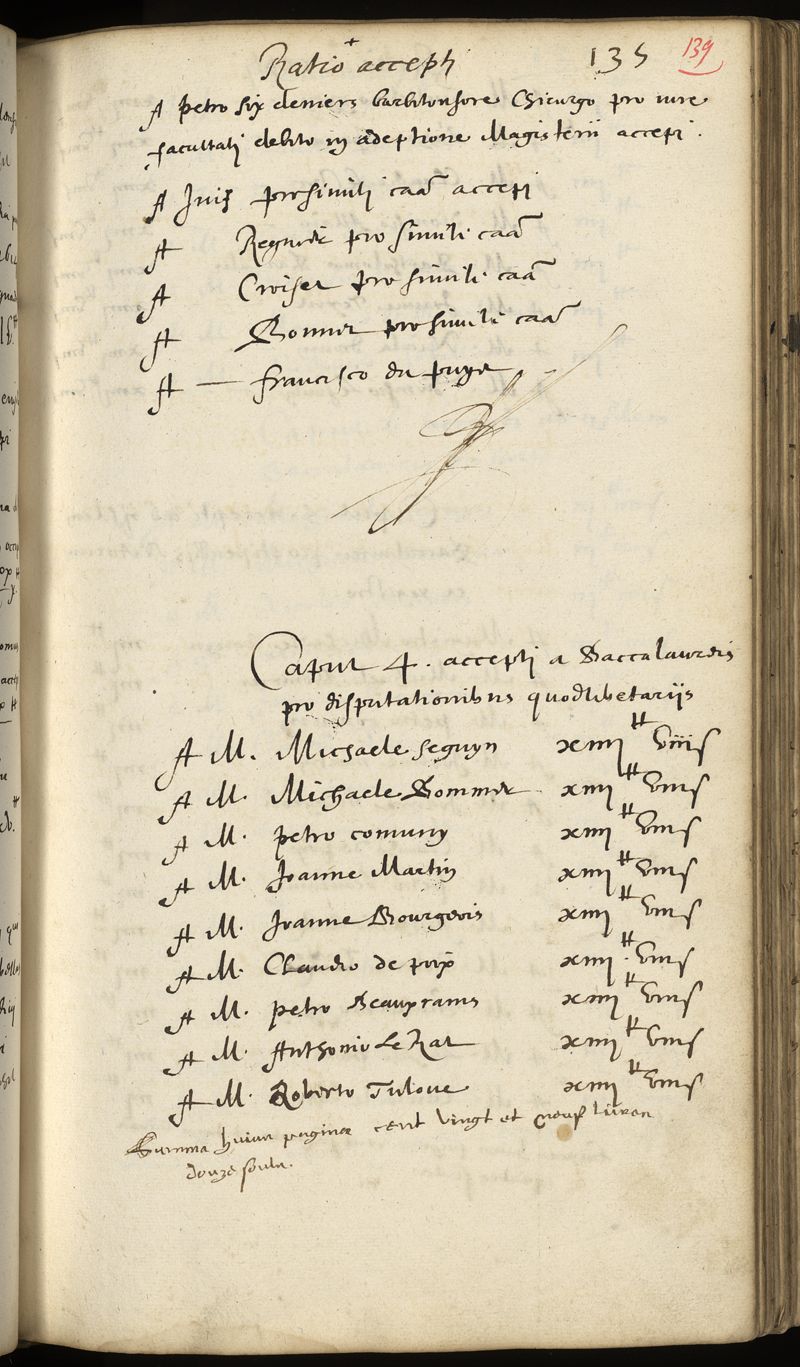 Ratio accepti 135 139
A petro six deniers barbitonsore Chirurgo pro iure
facultati debito in adeptione Magisterii accepi.
A Juif pro simili caã accepi
A Regnard pro simili caã
A Croiset pro simili caã
A Bonnet pro simili caã
A — francisco du puys
Caput 4. accepti a Baccalaureis
pro disputationibus quodlibetariis
A M. Michaele Seguyn xiiij ₶ viij s
A M. Michaele Sommer xiiij ₶ viij s
A M. petro comuny xiiij ₶ viij s
A M. Joanne Martin xiiij ₶ viij s
A M. Joanne Bourgeois xiiij ₶ viij s
A M. Claudio de poix xiiij ₶ viij s
A M. petro Beauxrains xiiij ₶ viij s
A M. Anthonio Le Rat xiiij ₶ viij s
A M. Roberto Tuloue xiiij ₶ viij s
Summa huius paginae cent vingt et neuf livres
douze soulz.